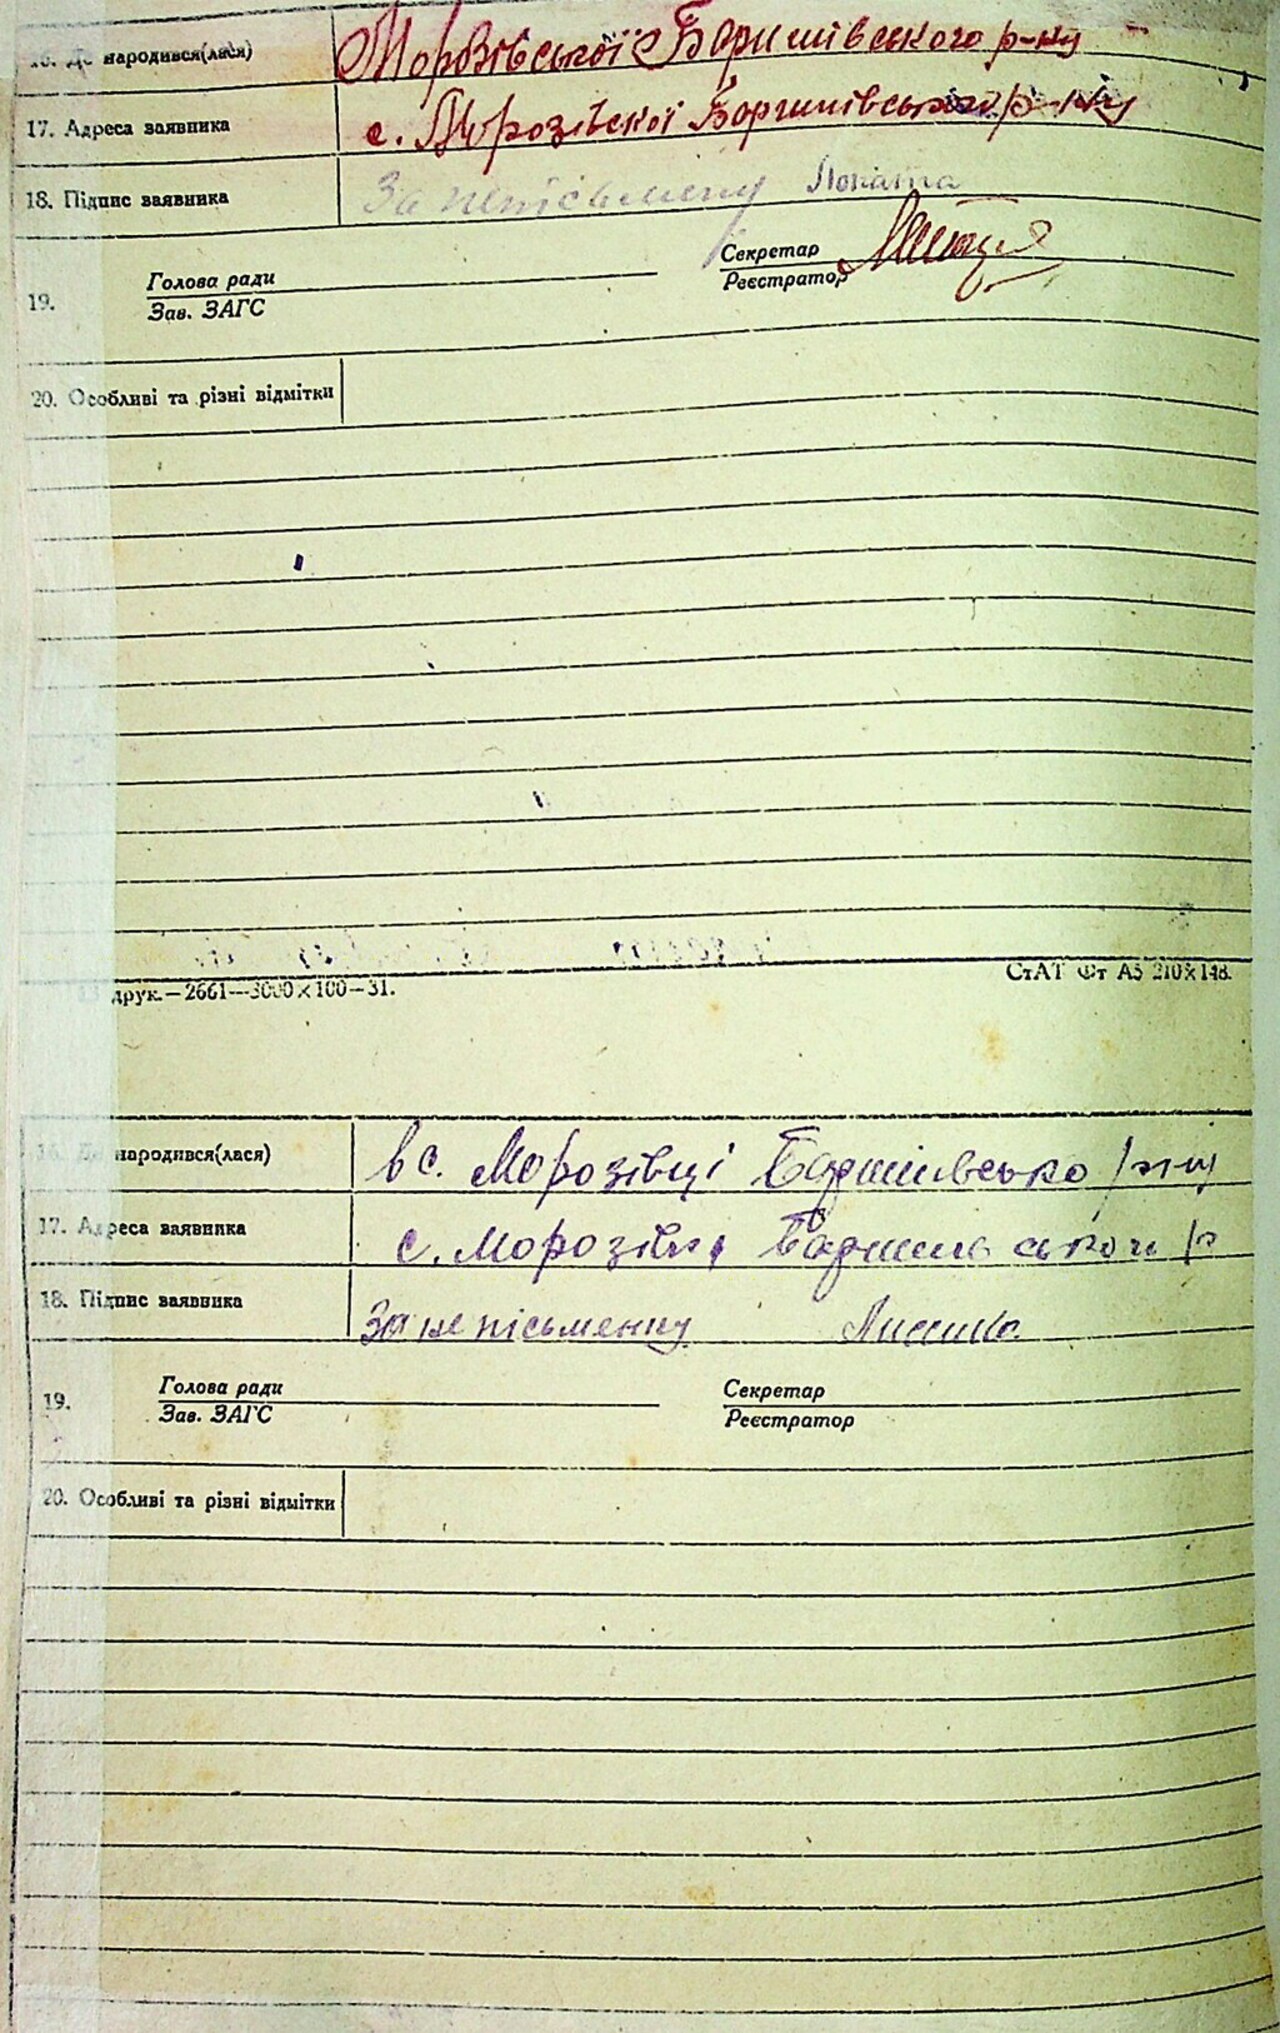 16. Де народився(лася) Морозівської с Баришівського р-ну
17. Адреса заявника с. Морозівскої Баришівського р-ну
18. Підпис заявника За неписьмену Лопата
Секретар
Голова ради Реєстратор
19. Зав. ЗАГС
20. Особливі та різні відмітки
друк.—2661—3000×100—31. СтАТ Фт А5 210×148.
16. Де народився(лася) в с. Морозівці Баришівсько р-ну
17. Адреса заявника с. Морозівка
18. Підпис заявника За не письменну
Голова ради Секретар
19. Зав. ЗАГС Реєстратор
20. Особливі та різні відмітки